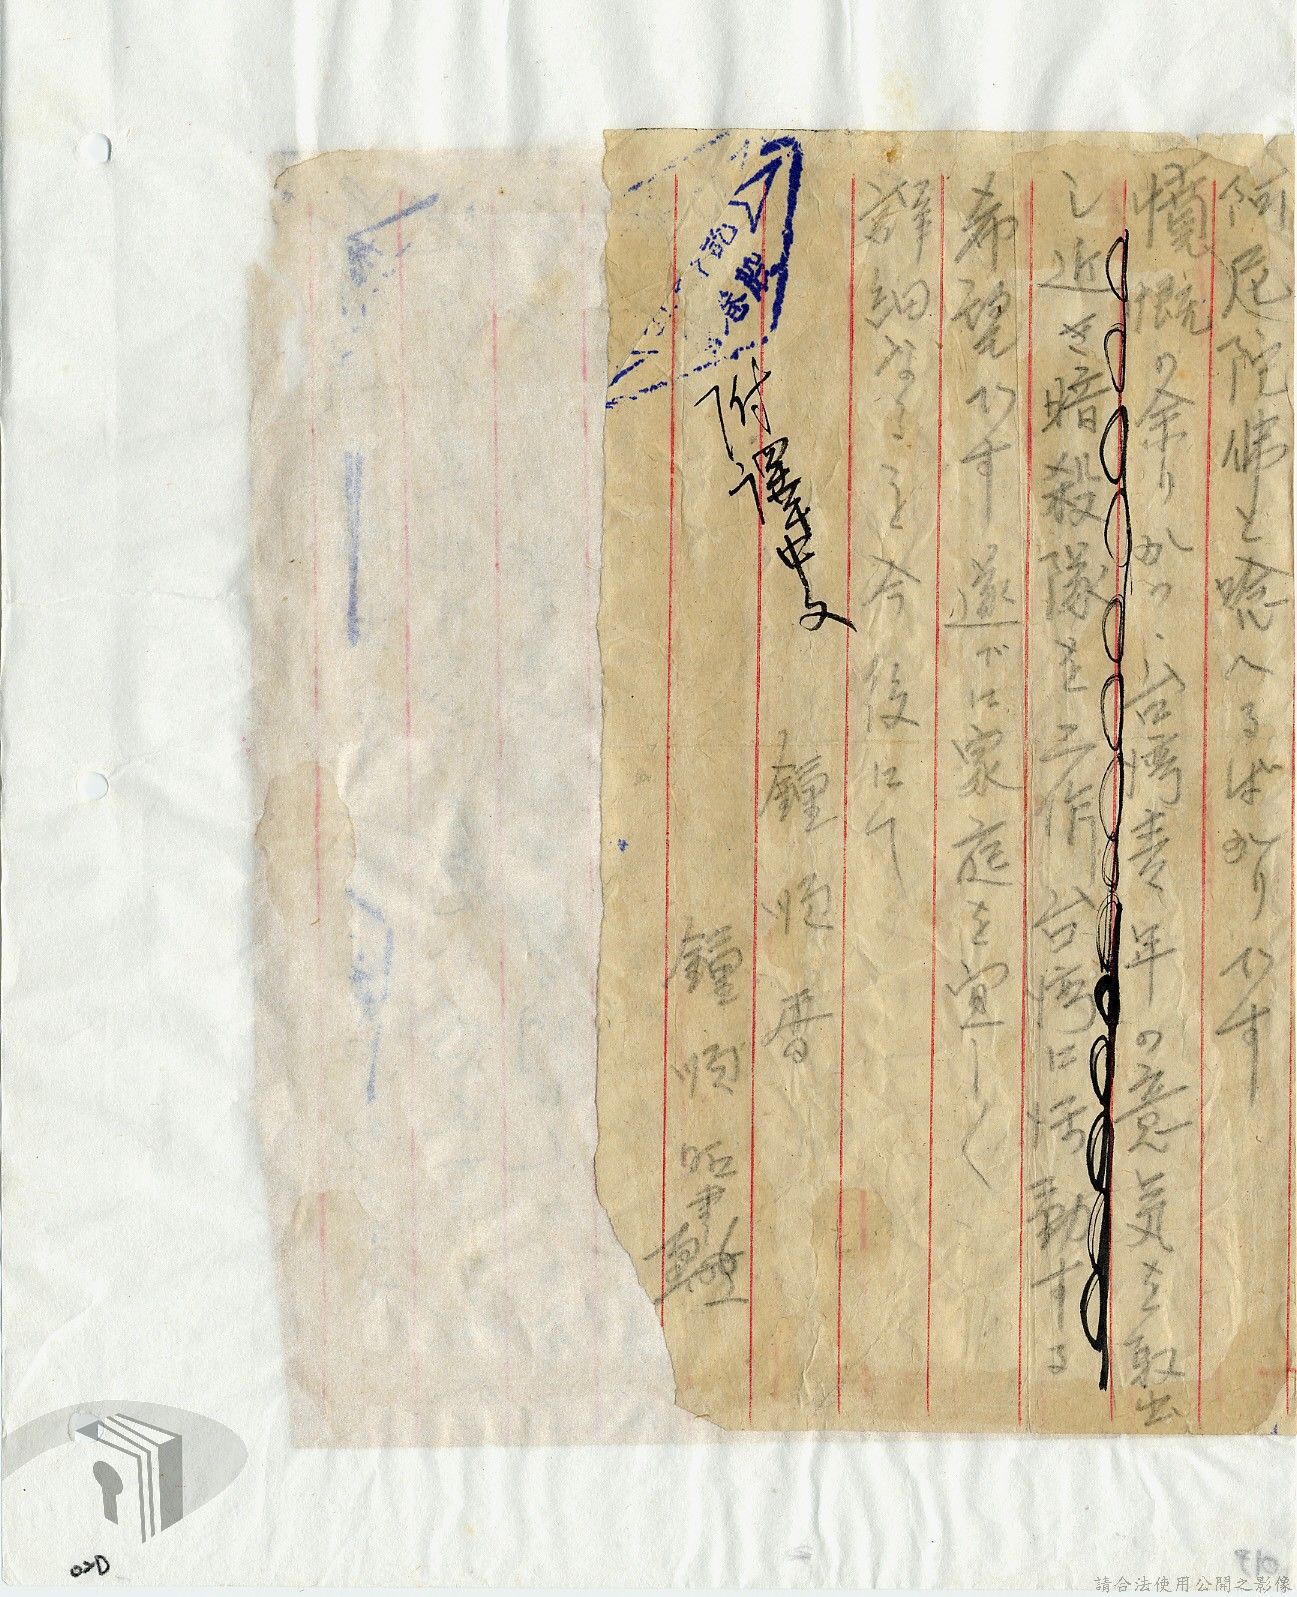 阿尼陀佛と唸へるばかりです
憤慨の余りかつ、台湾青年の意気を取出
し近き暗殺隊を工作台湾に活動する
希望です遂でに家庭を宜しく
詳細なことを今後にて
鐘順暦
鐘順昭書
附譯中文
020
請合法使用公開之影像